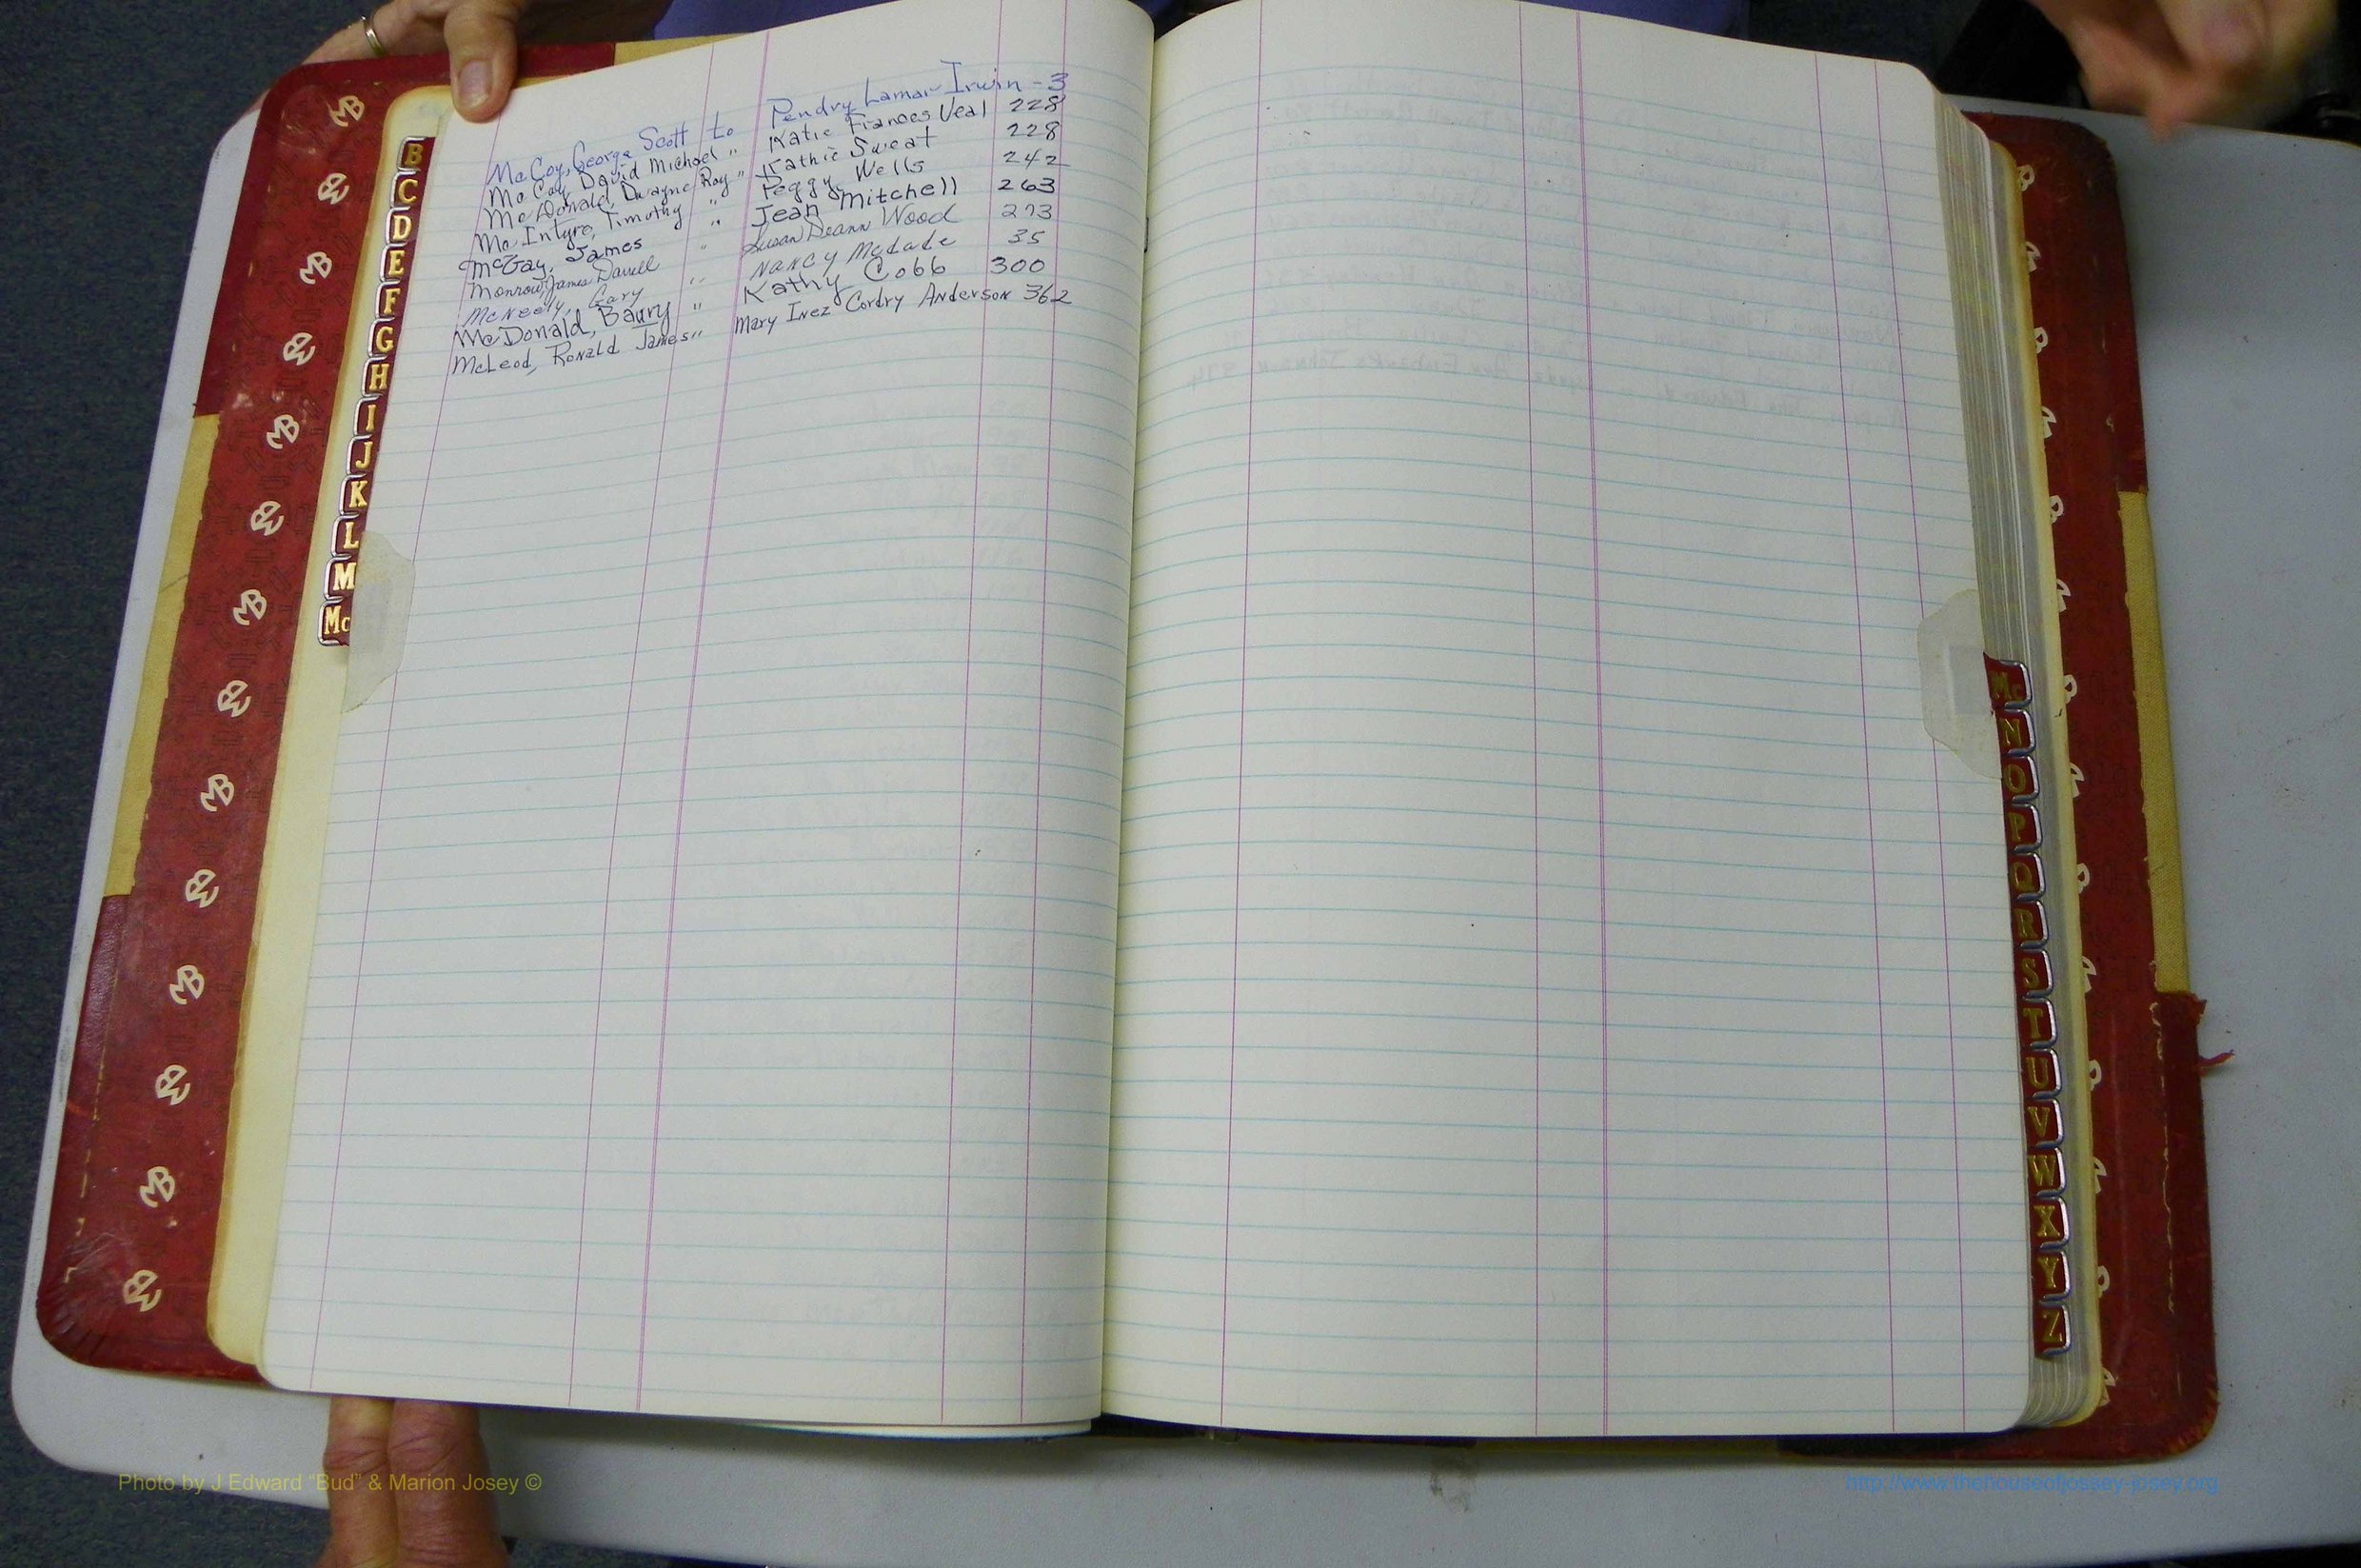 McCoy, George Scott to Pendry Lamar Irwin - 3
McCoy, David Michael " Katie Frances Veal 228
McDonald, Dwayne Ray " Kathie Sweat 228
McIntyre, Timothy " Peggy Wells 242
James " Jean Mitchell 263
Monrow, James Darrell " Susan Deann Wood 273
McNeely, Gary " Nancy McDade 35
McDonald, Barry " Kathy Cobb 300
McLeod, Ronald James " Mary Inez Cordry Anderson 362
B
C
D
E
F
G
H
I
J
K
L
M
Mc
Mc
N
O
P
Q
R
S
T
U
V
W
X
Y
Z
Photo by J Edward "Bud" & Marion Josey ©
http://www.thehouseofjossey-josey.org